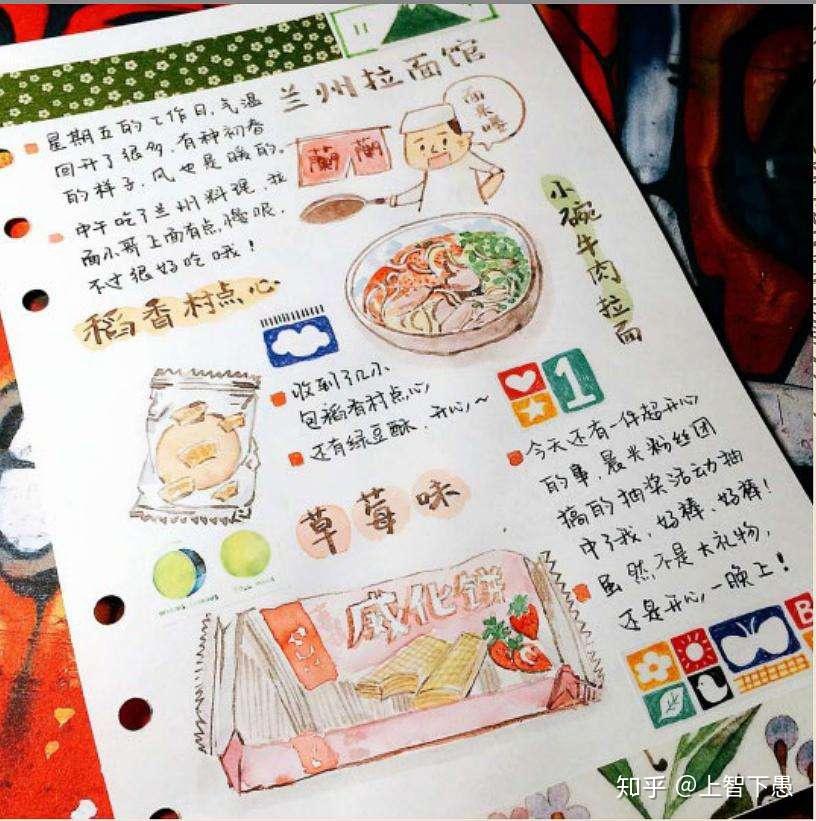 11
兰州拉面馆
星期五的工作日,气温
回升了很多,有种初春
的样子,风也是暖的。
中午吃了兰州料理,拉
面小哥上面有点慢呢,
不过很好吃哦!
面来喽
蘭 蘭
小碗牛肉拉面
稻香村点心
收到了几小
包稻香村点心
还有绿豆酥,开心~
1
今天还有一件超开心
的事,晨光粉丝团
搞的抽奖活动抽
中了我,好棒、好棒!
虽然不是大礼物,
还是开心一晚上!
草莓味
威化饼
B
知乎 @上智下愚